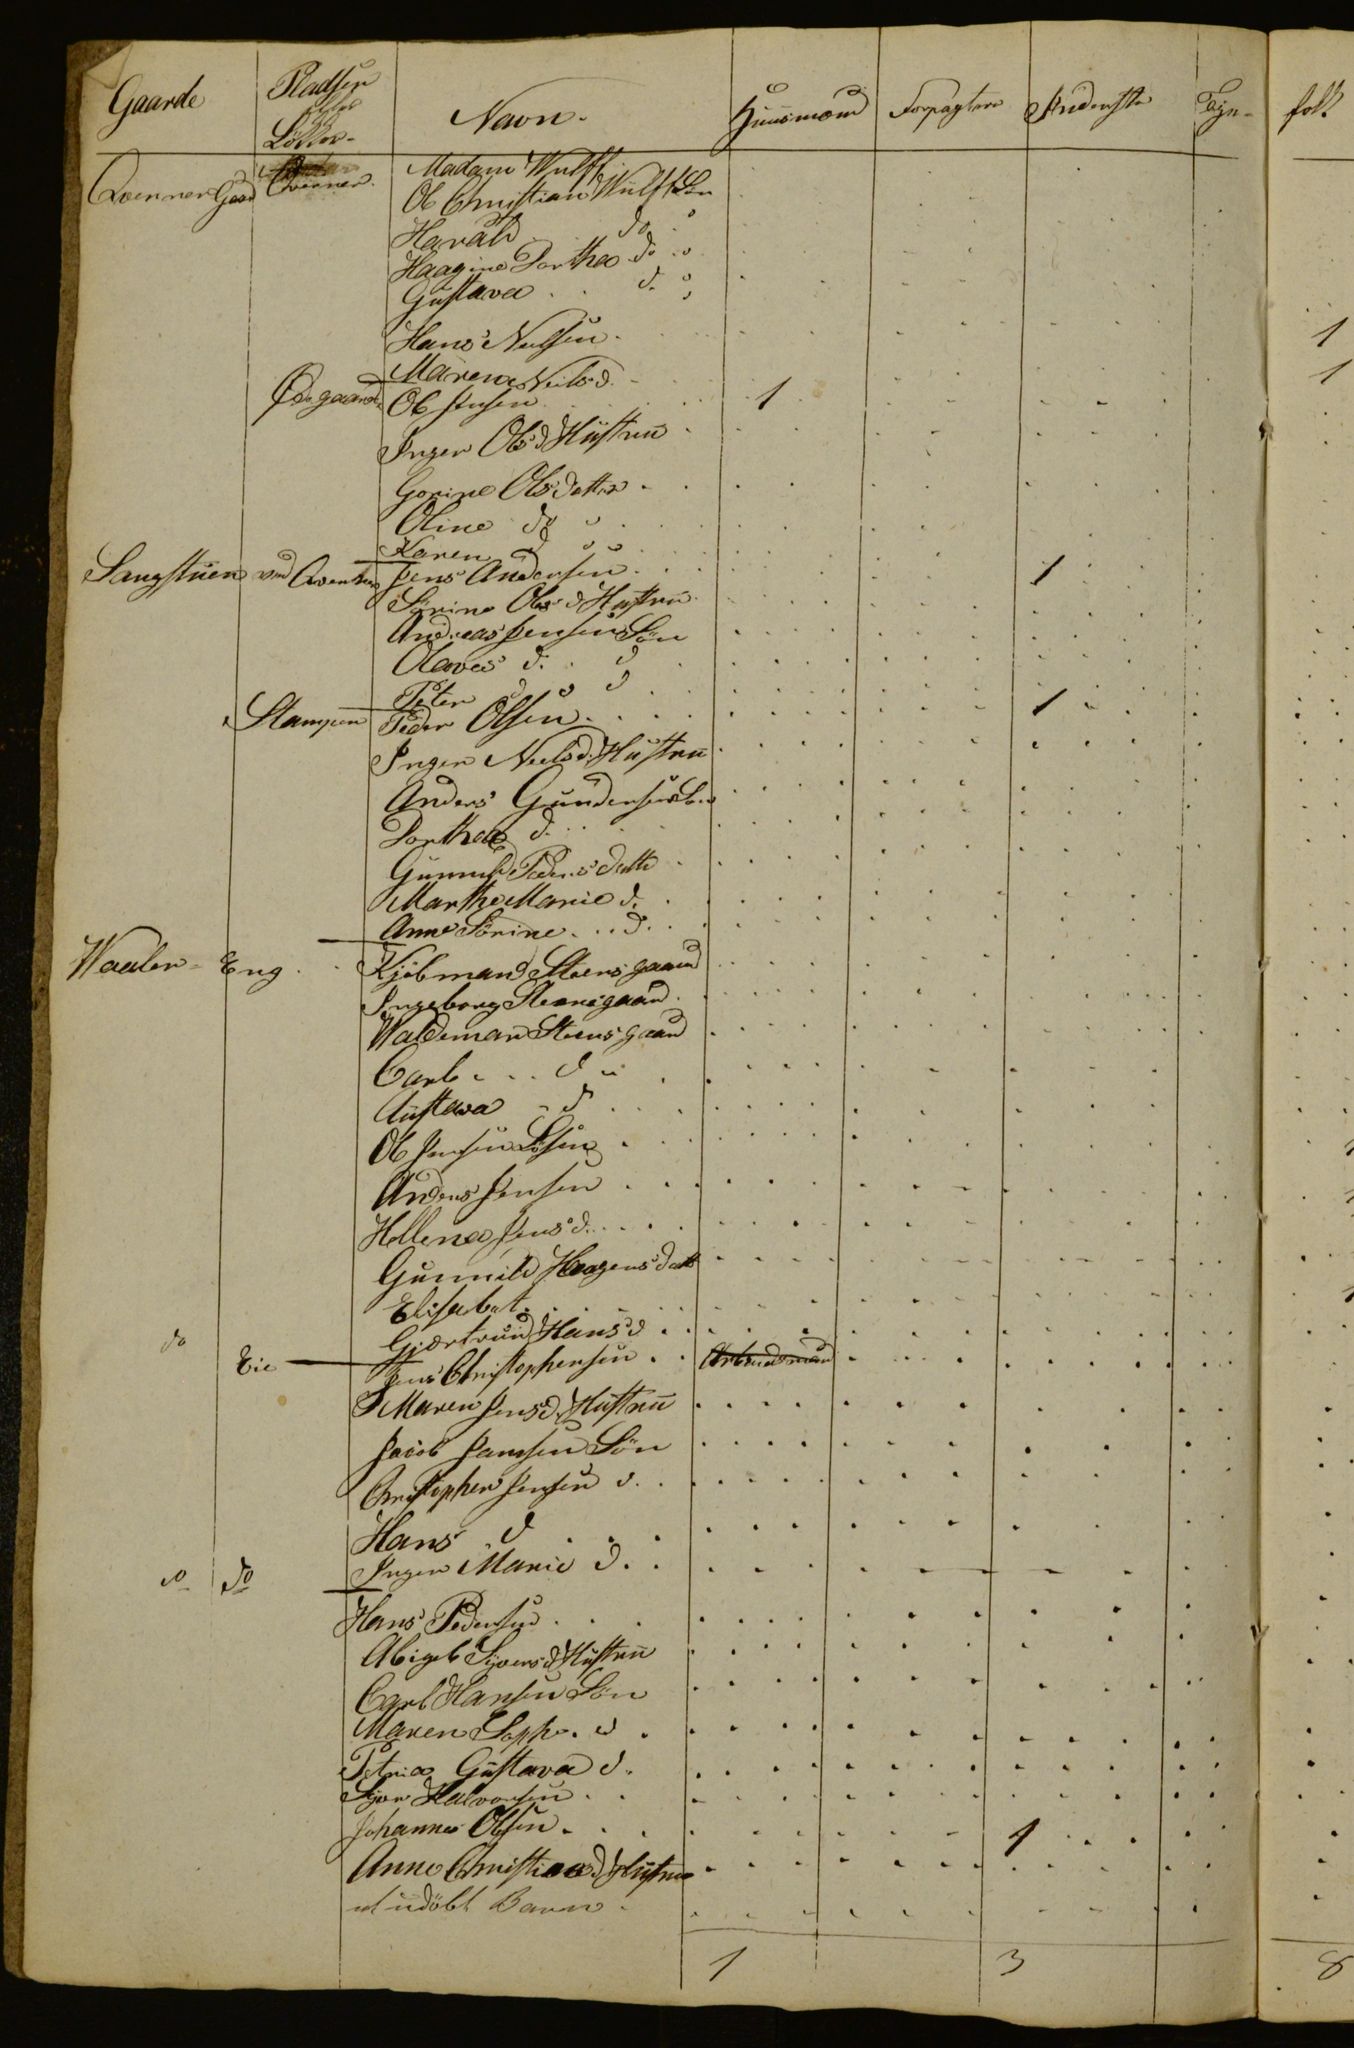 Gaarde Pladser eller Løkker Navn. Huusmænd Forpagtere Inderster Tjene- folk
Qverner Gaard Qverner. Madam Wulff
Ole Christian Wulff Søn
Harald do
Haagine Dorthea do
Gustava d.
Hans Nielsen.
Maren Nielsd.
Ødegaard Ole Jensen 1
Inger Olsd Hustrue
Gorine Olsdatter
Oline do
Karen d
Sangstuen ved Qvernen Jens Andersen 1
Sørine Olsd Hustru
Andreas Jensen Søn
Olaves d. d
Peter d d
Stampen Peder Olsen 1
Inger Neelsd. Hustrue
Anders Gundersen
Dorthea d.
Gunnild Peders datte
Marthe Marie d.
Anne Sørine d.
Waaler Eng Kjøbmand Steensgaard
Ingeborg Steensgaard
Waldemar Steensgaard
Carl d
Austava d
Ole Jensen
Anders Jensen
Hellena Jensd.
Gunnild Haagensdatt
Elisabet
Gjertrud Hansd
do Eie Jens Christophersen Arbeidsmand
Maren Jensd. Hustrue
Jacob Jensen Søn
Christopher Jensen d.
Hans d
Inger Marie d.
do do
Hans Pedersen
Abigel Siversd Hustrue
Carl Hansen Søn
Maren Soph. d
Petria Gustava d.
Halvorsen
Johannes Olsen 1
Anne Christiansd Hustrue
et udøbt Barn
1 3 8